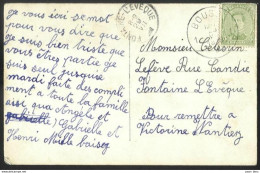 je vous écri se mot
pour vous dire que
je suis bien triste que
vous être partie je
suis seul jusque
mardi faite des compli
ment a toute la famille
ainsi qua Angèle et
Gabrielle et
Henri Mille baiser
L'EVEQUE
Monsieur Célesein
Lefèvre Rue Candie
Fontaine L'Evêque
Pour remettre a
Victorine Nantier